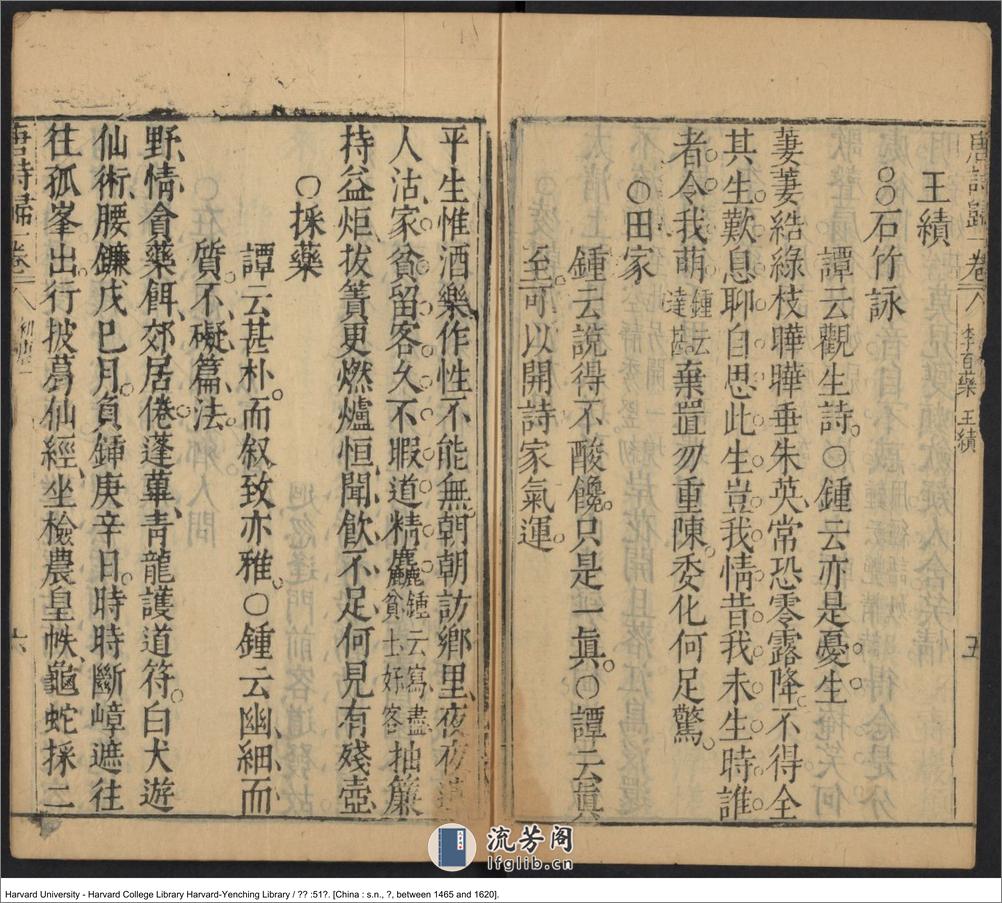 唐詩歸 卷八 李百藥 王績 五
王績
○○石竹詠
譚云觀生詩○鍾云亦是憂生
萋萋結綠枝曄曄垂朱英常恐零露降不得全
其生歎息聊自思此生豈我情昔我未生時誰
者令我萌鍾云達甚棄置勿重陳委化何足驚
○田家
鍾云說得不酸餽只是一真○譚云真
至可以開詩家氣運
平生惟酒樂作性不能無朝朝訪鄉里夜夜遣
人沽家貧留客久不暇道精麤鍾云寫盡貧士好客抽簾
持益炬拔簀更燃爐恒聞飲不足何見有殘壺
○採藥
譚云甚朴而叙致亦雅○鍾云幽細而
質不礙篇法
野情貪藥餌郊居倦蓬蓽青龍護道符白犬遊
仙術腰鐮戊巳月負鍤庚辛日時時斷嶂遮往
往孤峯出行披葛仙經坐檢農皇帙龜蛇採二
唐詩歸 卷八 初唐 六
流芳阁
lfglib.cn
Harvard University - Harvard College Library Harvard-Yenching Library / ?? :51?. [China : s.n., ?, between 1465 and 1620].